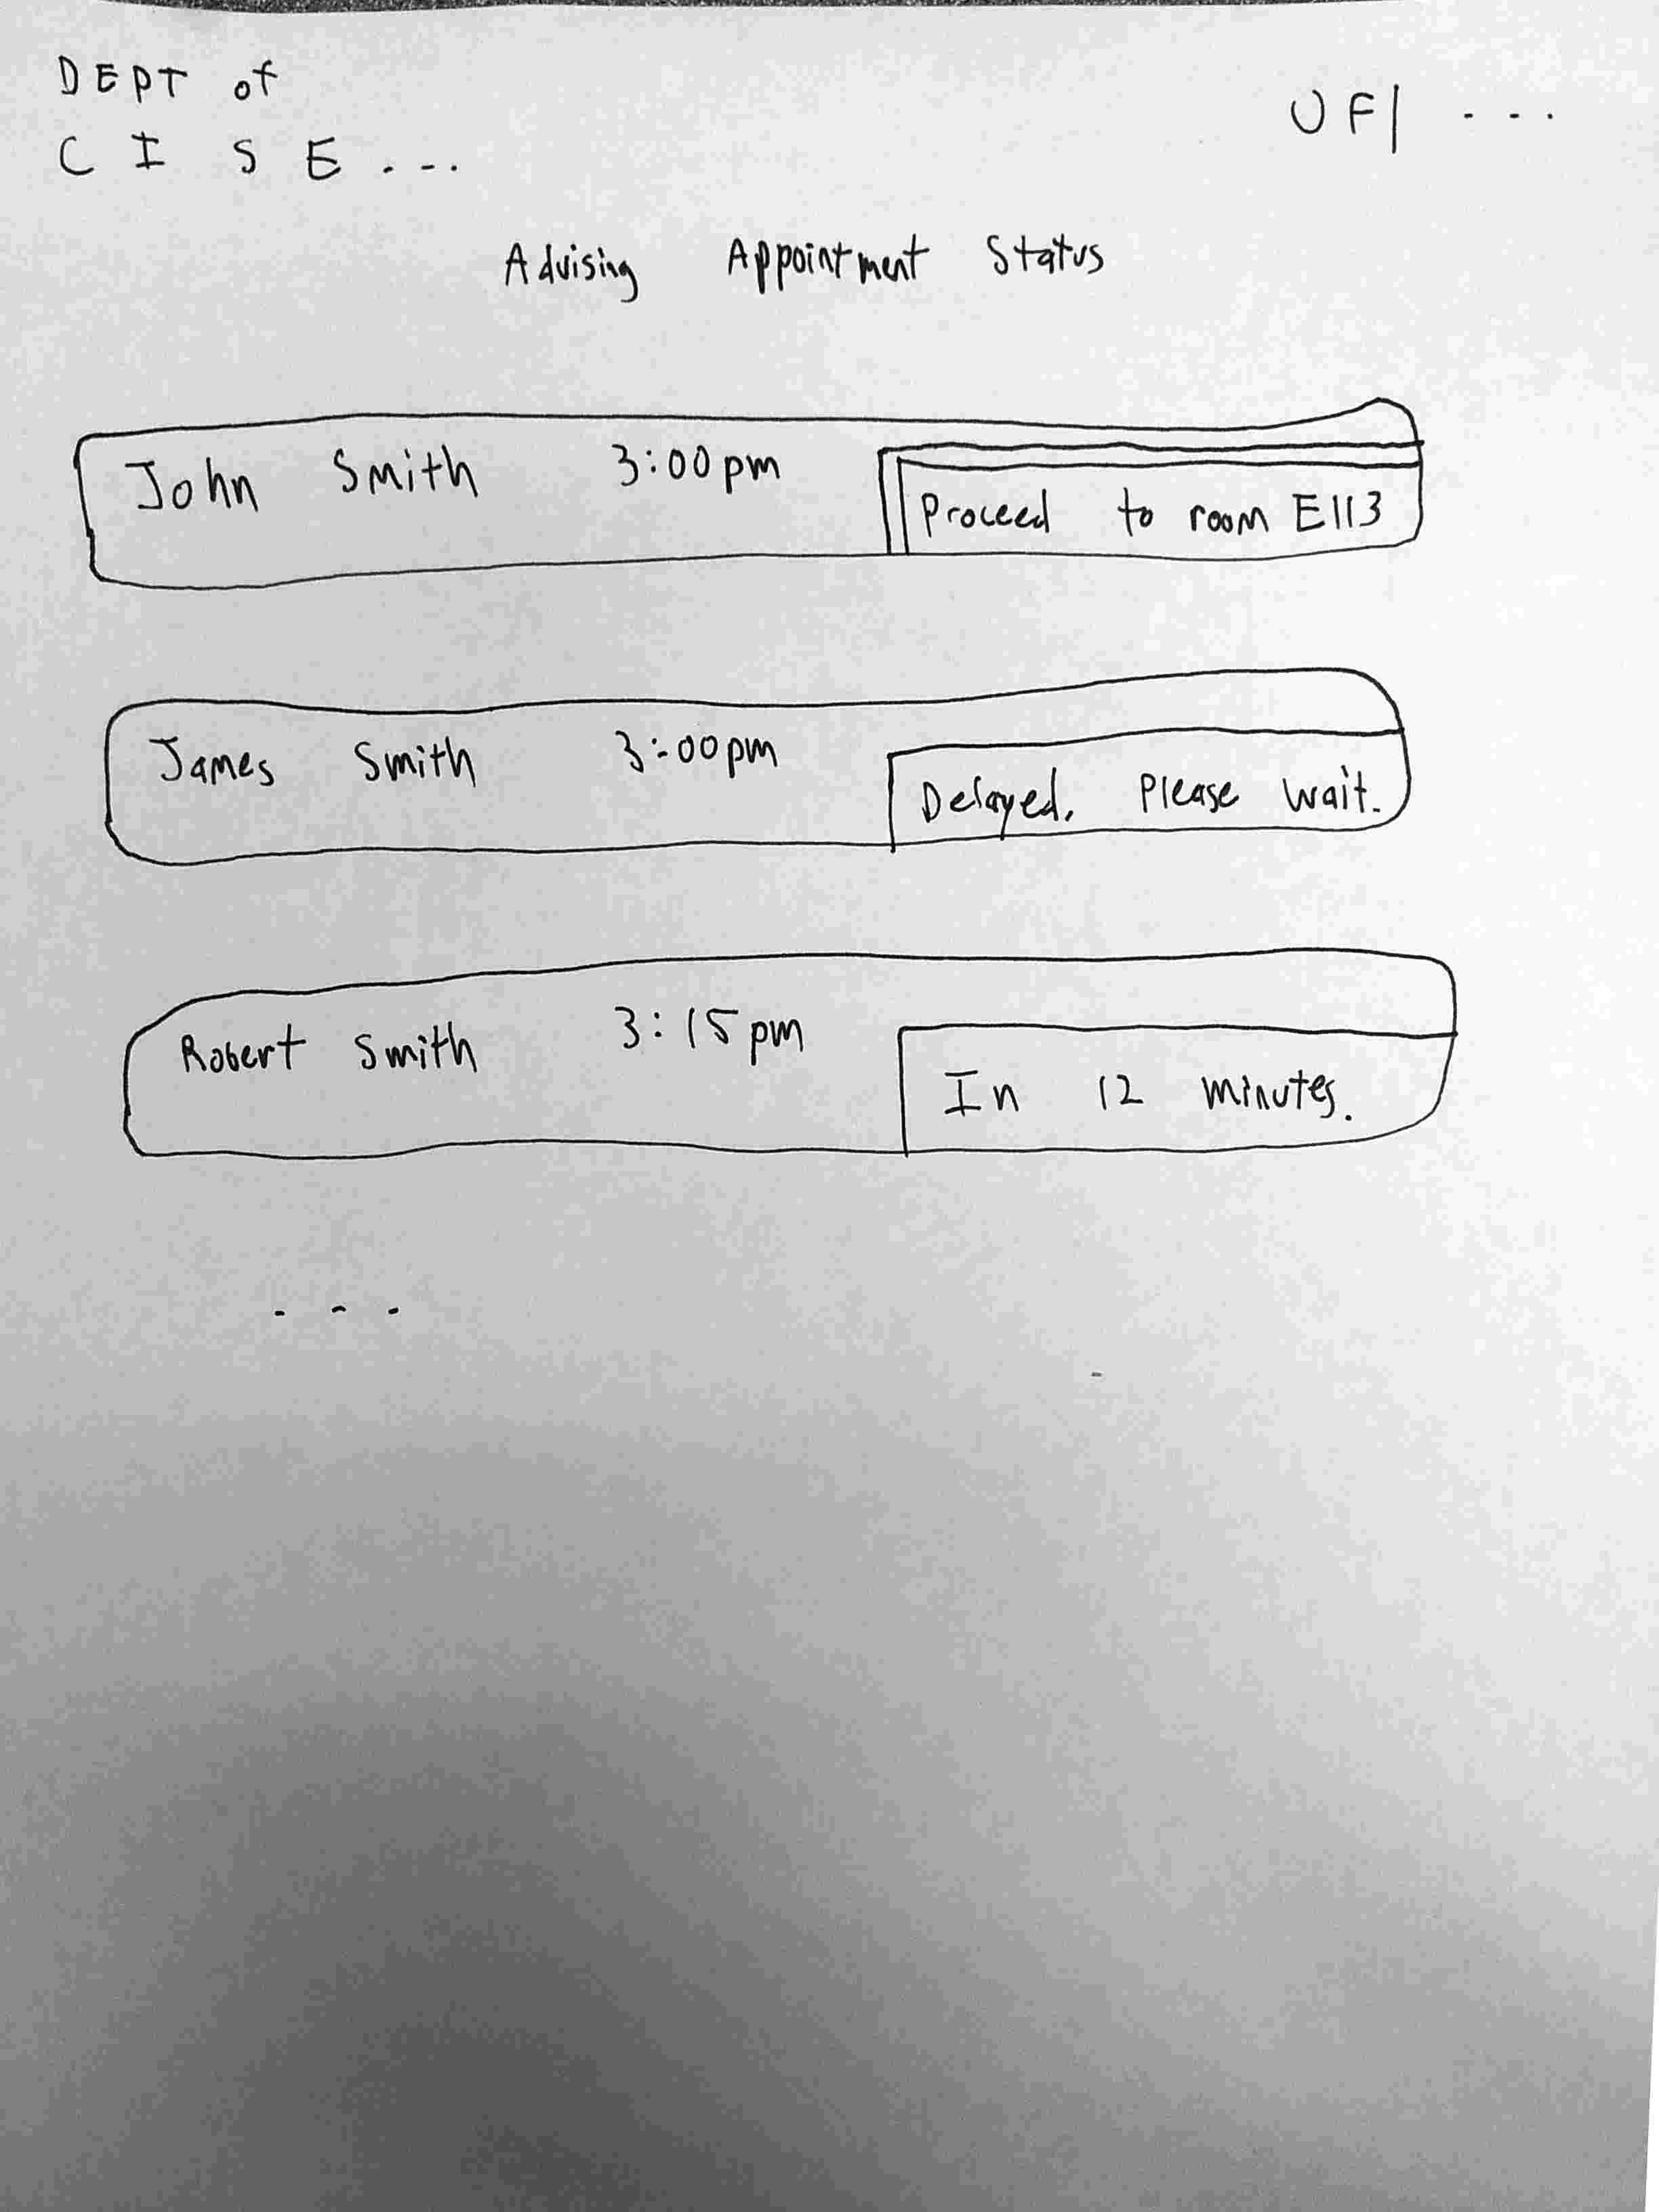 DEPT of
CISE...
UF| ...
Advising Appointment Status
John Smith 3:00pm
Proceed to room E113
James Smith 3:00pm
Delayed. Please wait.
Robert Smith 3:15pm
In 12 minutes.
...